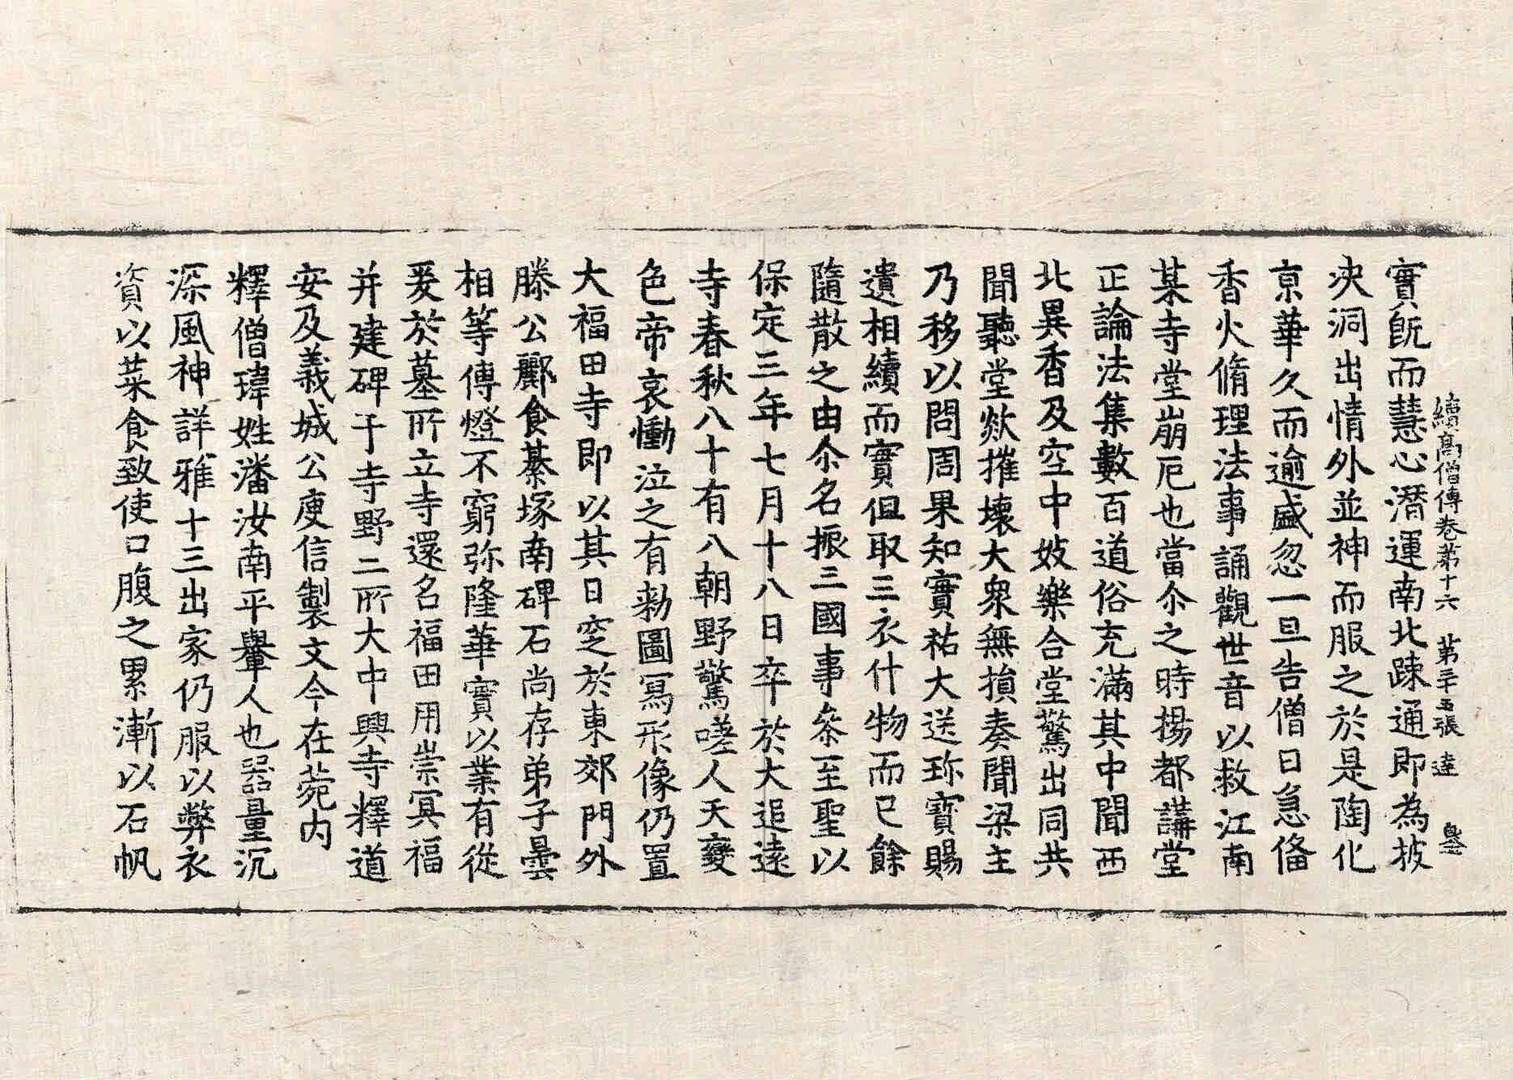 續高僧傳卷第十六 第三十五張 達
實旣而慧心潛運南北疎通即為披
决洞出情外並神而服之於是陶化
京華久而逾盛忽一旦告僧曰急俻
香火脩理法事誦觀世音以救江南
某寺堂崩厄也當尒之時揚都講堂
正論法集數百道俗充滿其中聞西
北異香及空中妓樂合堂驚出同共
聞聽堂欻摧壞大衆無損奏聞梁主
乃移以問周果知實祐大送珎寶賜
遺相續而實但取三衣什物而已餘
隨散之由尒名振三國事叅至聖以
保定三年七月十八日卒於大追遠
寺春秋八十有八朝野驚嗟人天變
色帝哀慟泣之有勑圖寫形像仍置
大福田寺即以其日窆於東郊門外
滕公酈食綦塚南碑石尚存弟子曇
相等傳燈不窮弥隆華實以業有從
爰於墓所立寺還名福田用崇冥福
并建碑于寺野二所大中興寺釋道
安及義城公庾信製文今在菀内
釋僧瑋姓潘汝南平轝人也器量沉
深風神詳雅十三出家仍服以弊衣
資以菜食致使口腹之累漸以石帆